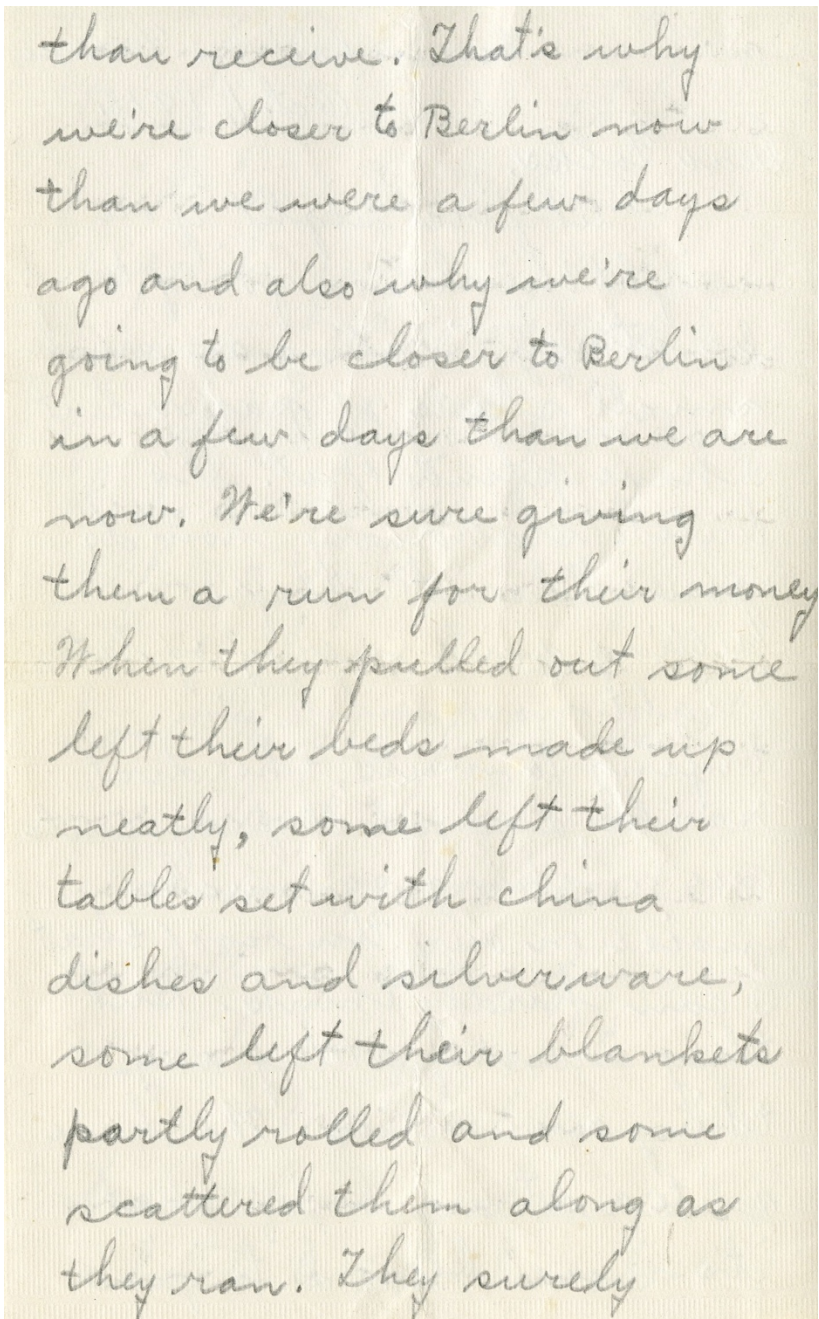 than receive. That's why
we're closer to Berlin now
than we were a few days
ago and also why we're
going to be closer to Berlin
in a few days than we are
now. We're sure giving
them a run for their money
When they pulled out some
left their beds made up
neatly, some left their
tables set with china
dishes and silverware,
some left their blankets
partly rolled and some
scattered them along as
they ran. They surely